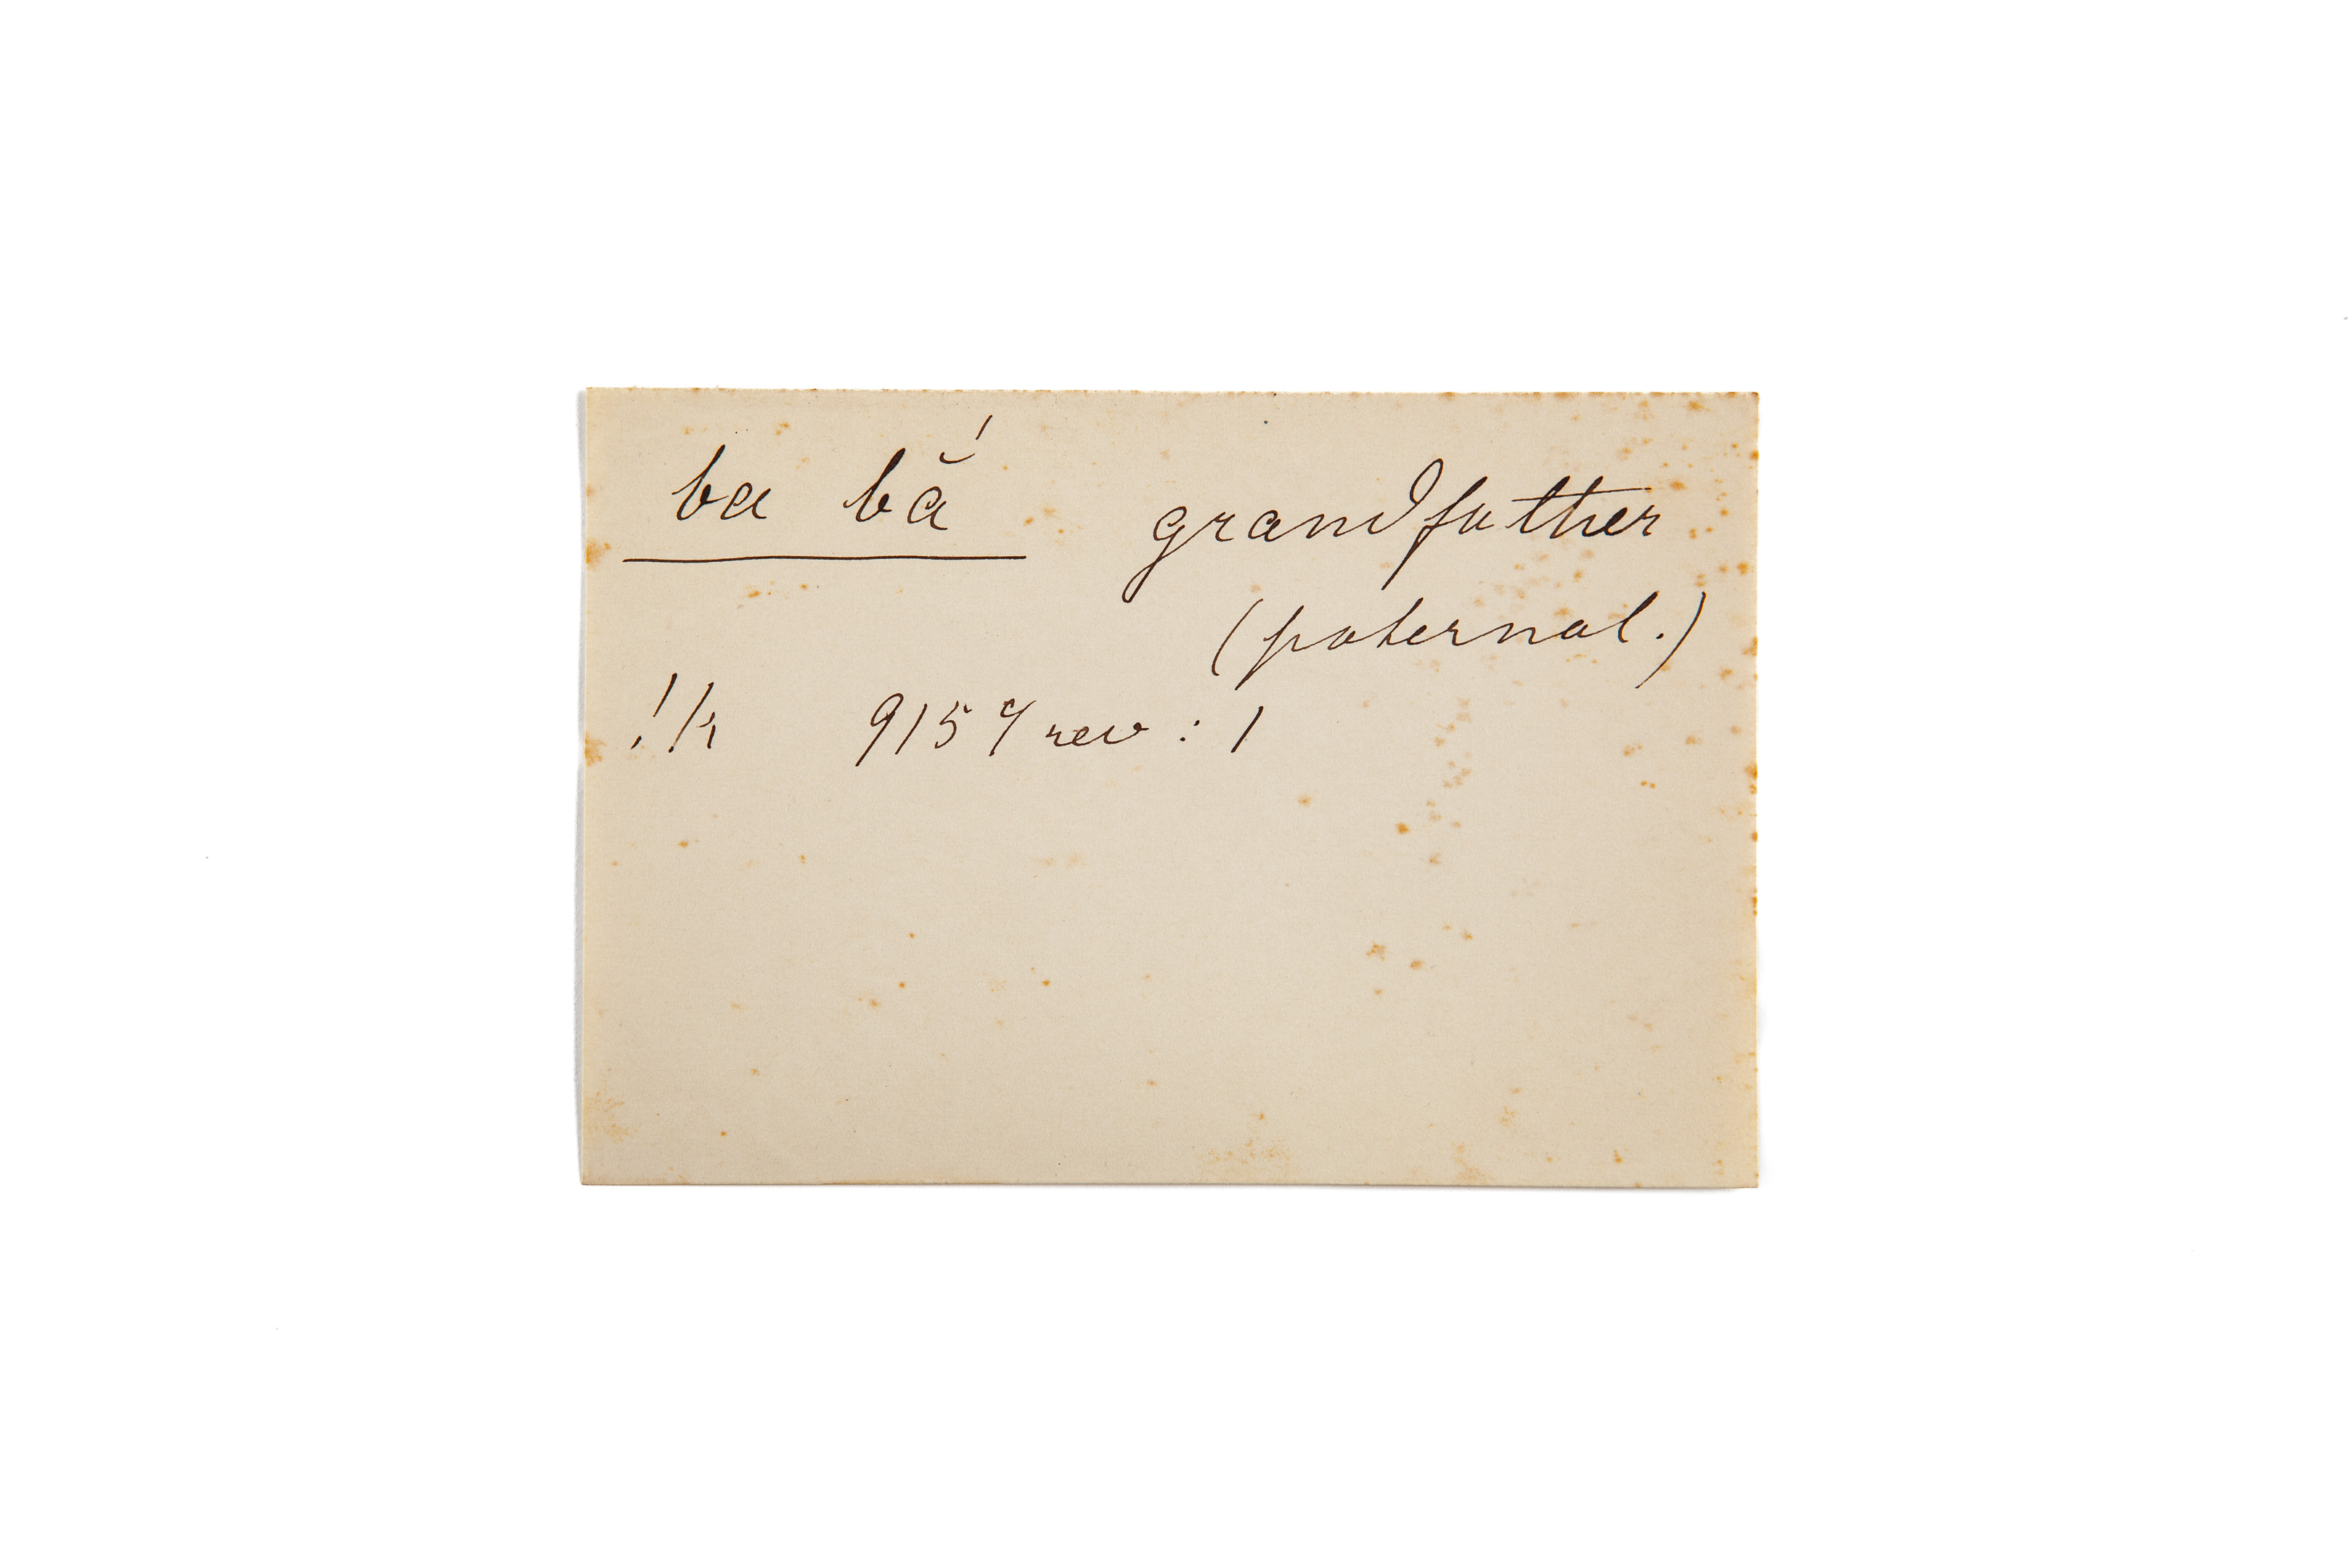 ba bắ grandfather
(paternal.)
!k 9157 rev : 1